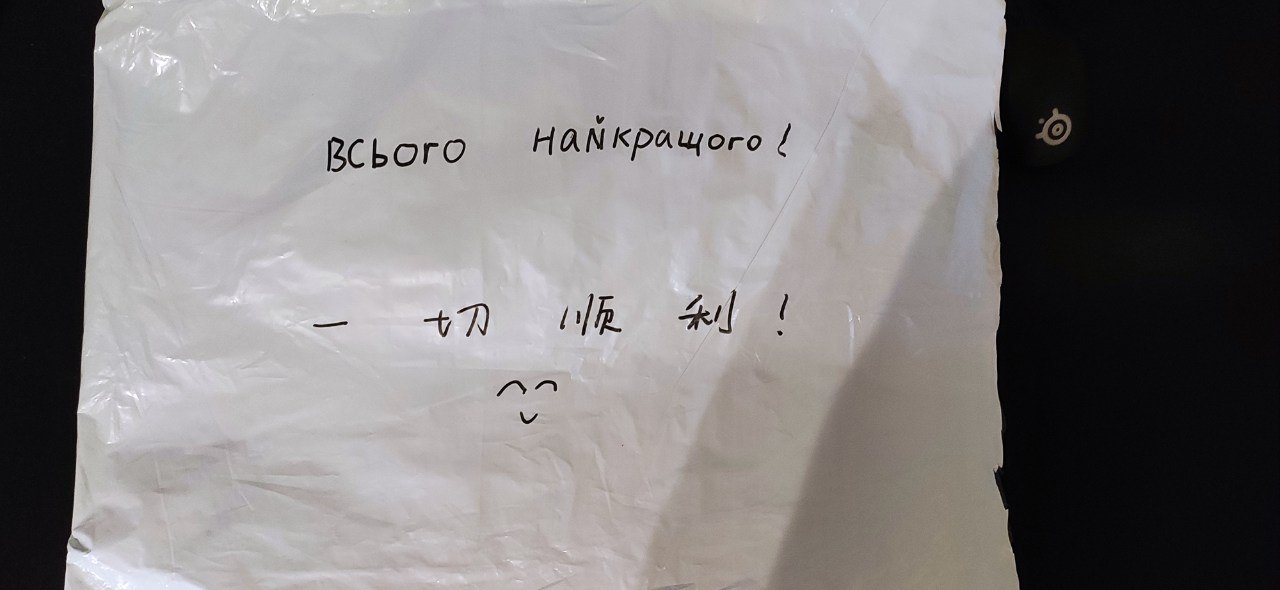 всього найкращого!
一切顺利!